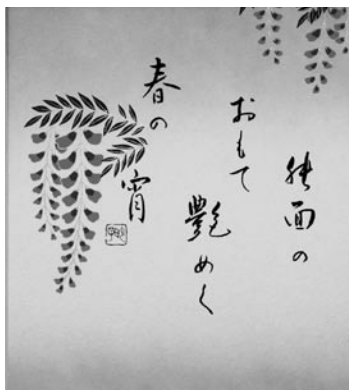 能面の
おもて艶めく
春の宵